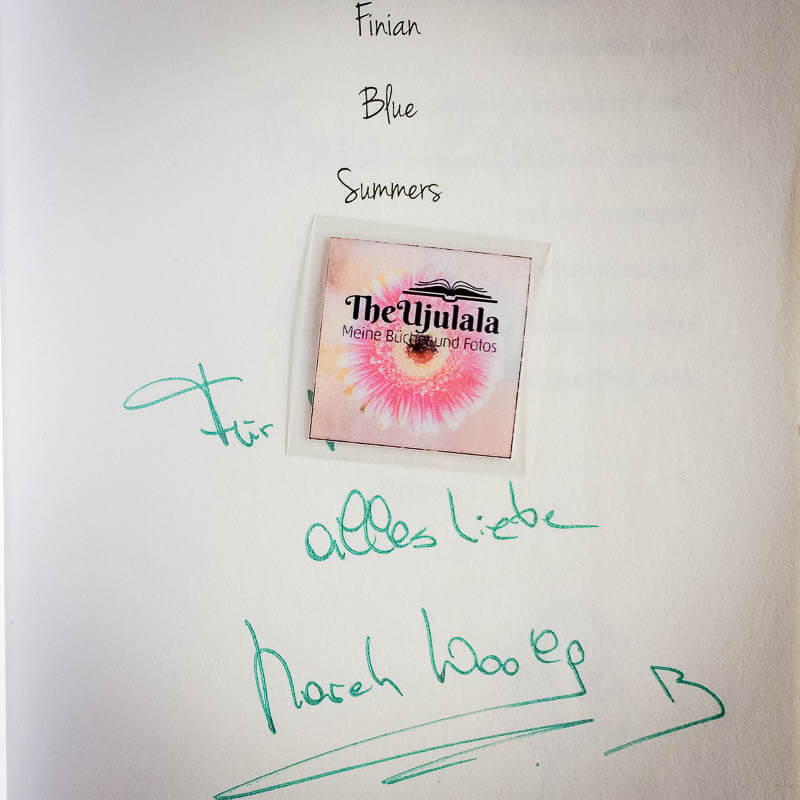 Finian
Blue
Summers
TheUjulala
Meine Bücher und Fotos
Für
alles Liebe
Marah Woolf